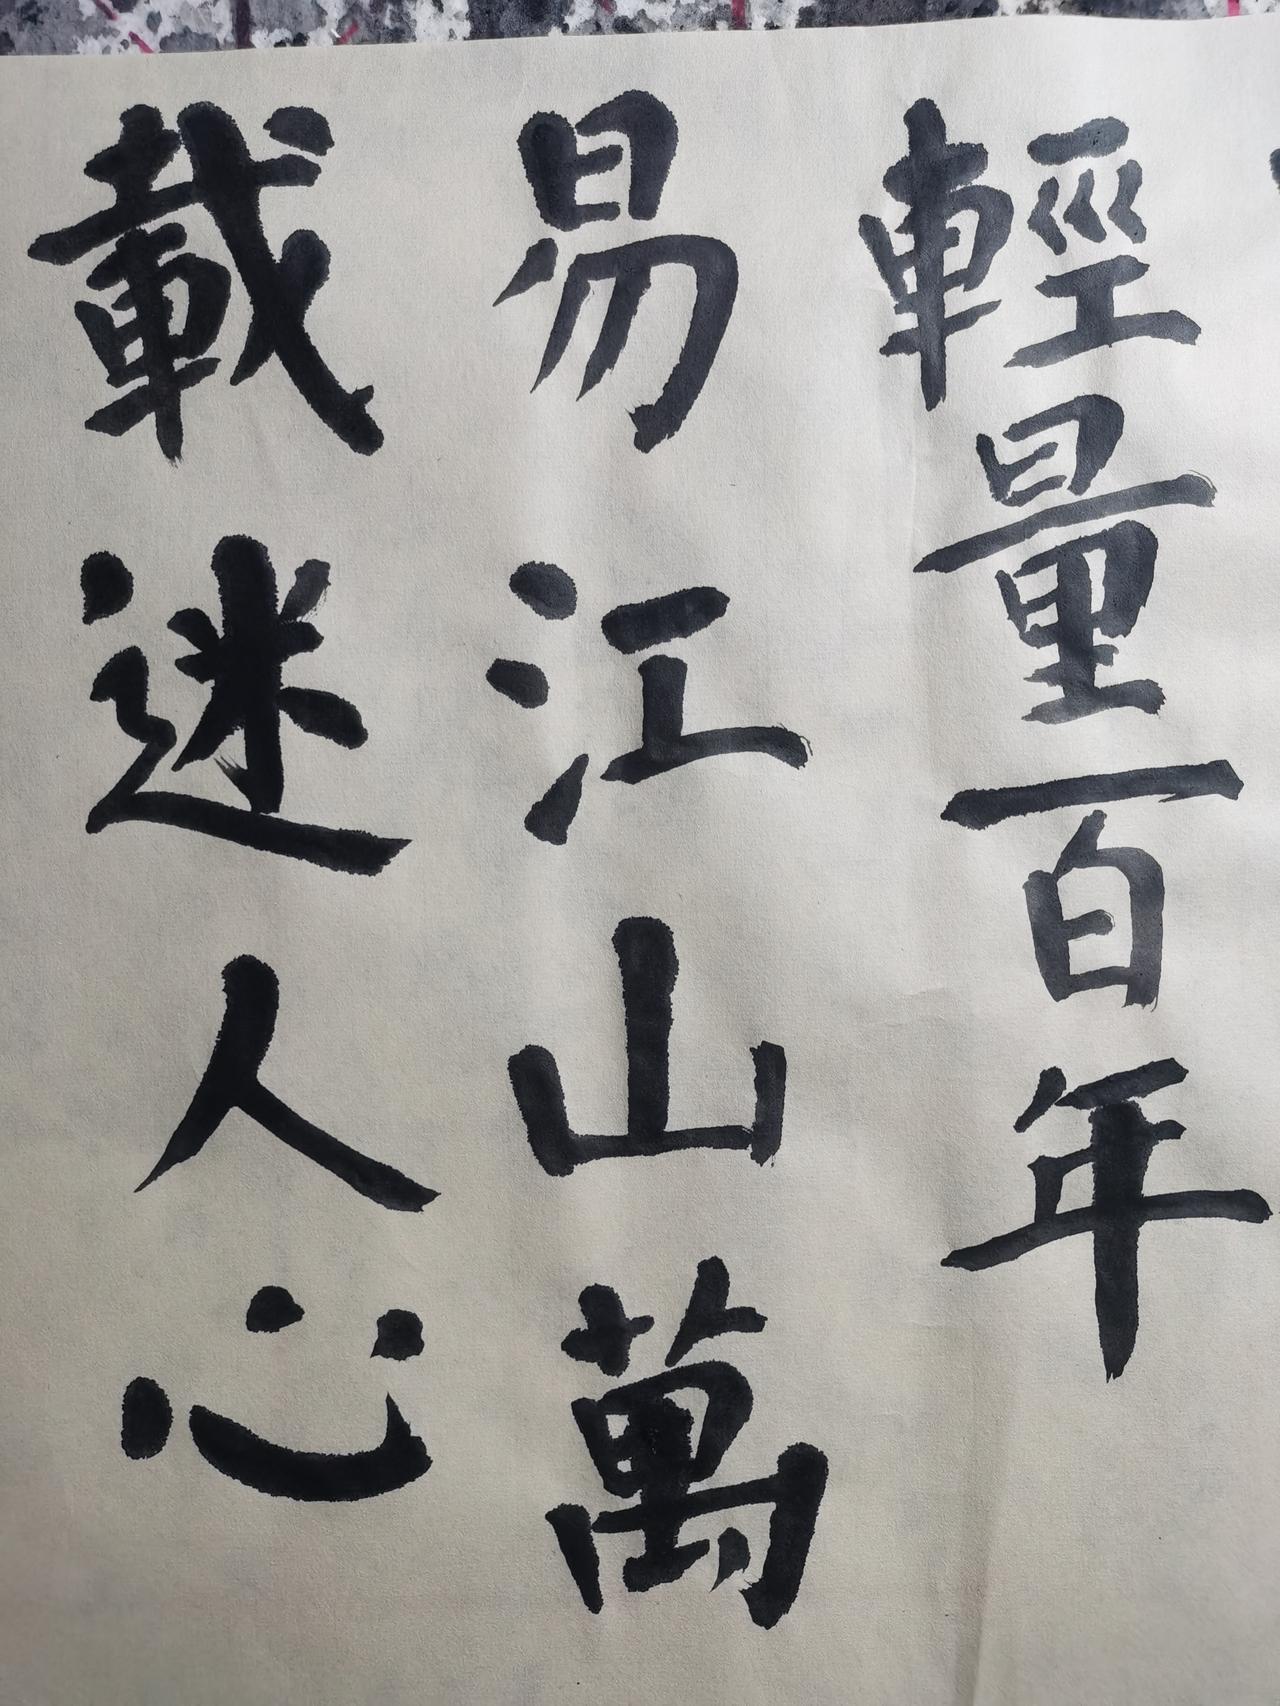 輕量百年
易江山萬
載迷人心